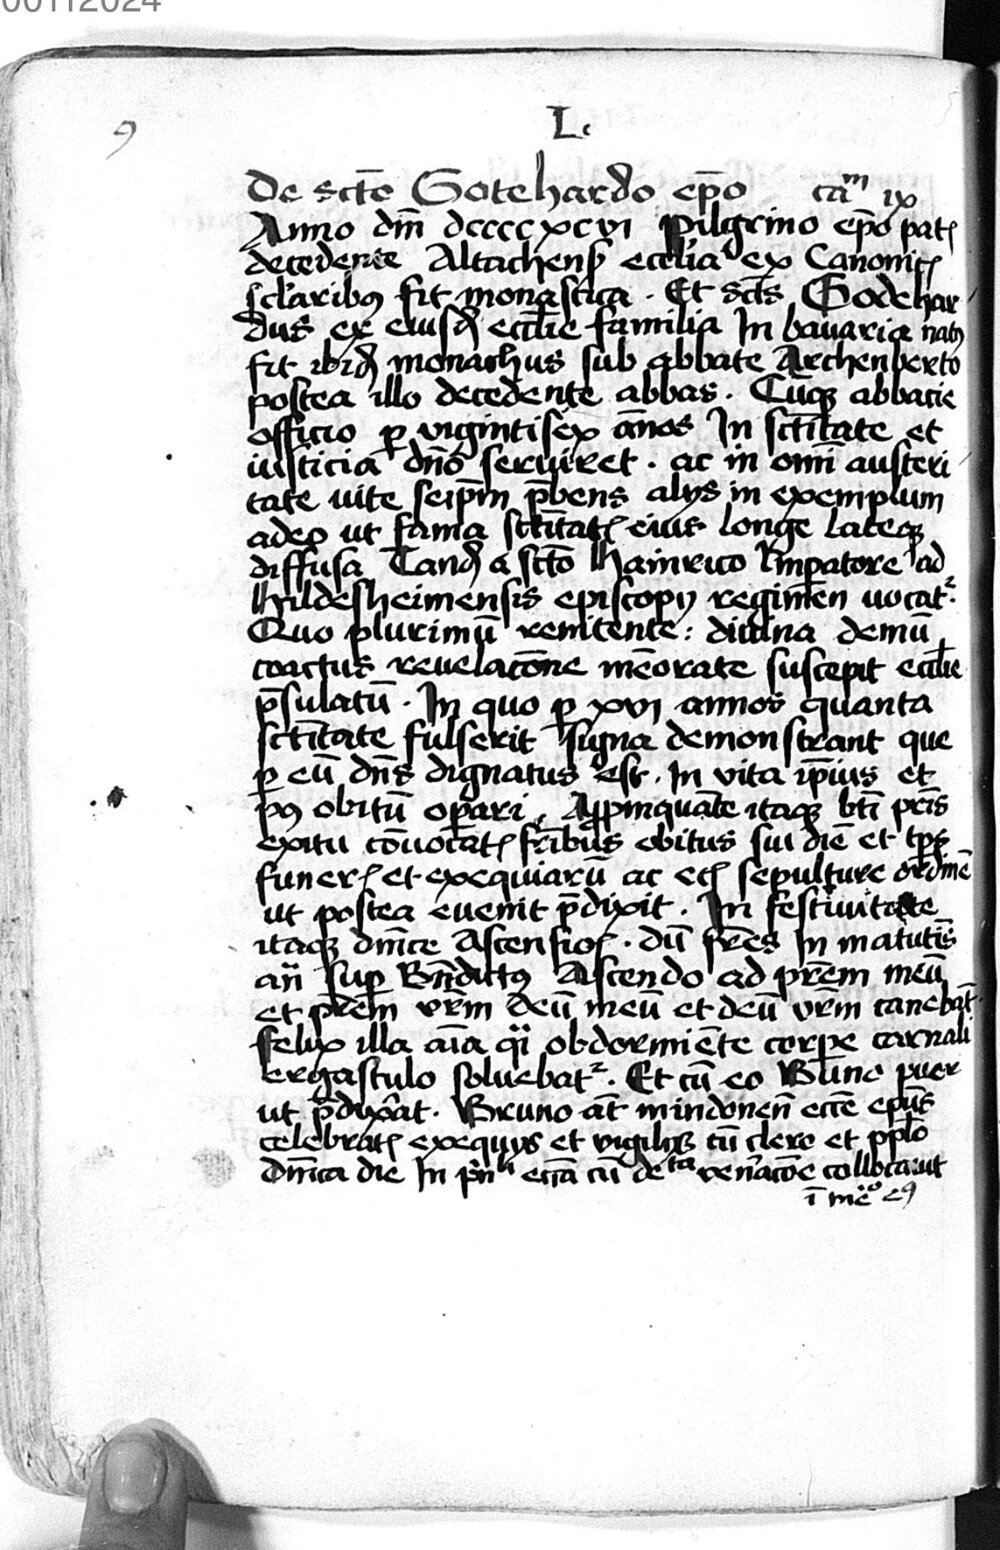 00112024
9
L.
De sct̄o Gotehardo ep̄o cam ix
Anno dn̄i dccccxcvi pilgrino ep̄o pat
decedente Altachens ecclīa ex Canonic
sclaribꝰ fit monastica . Et sct̄s Godehar
dus ex eiusd ecclīe familia In bauaria natꝰ
fit ibid monachus sub abbate Archenberto
postea illo decedente abbas . Cūqꝫ abbacie
officio ꝑ vigintisex an̄os In sctītate et
iusticia dn̄o seruiret . ac in om̄i austeri
tate uite seip̄m p̄bens alijs in exemplum
adeo ut fama sctītat eius longe lateqꝫ
diffusa Tand a sct̄o hainrico Imꝑatore ad
hildesheimensis episcopij regim̄en uocat
Quo plurimū renitente : diuina demū
coactus reuelacōne mēorate suscepit ecclīe
p̄sulatū . In quo ꝑ xvi annos quanta
sctītate fulserit signa demonstrant que
ꝑ eū dn̄s dignatus est . In vita ip̄ius et
pꝰ obitū oꝑari . Apropinquāte itaqꝫ bt̄i pr̄is
exitu cōuocat fr̄ibus obitus sui diē et tp̄s
funer et exequiarū ac eci sepulture ordinē
ut postea euenit p̄dixit . In festiuitate
itaqꝫ dn̄ice Ascensio . dū fr̄es In matutis̄
an̄ suꝑ Bn̄dictꝰ Ascendo ad pr̄em meū
et pr̄em vr̄m deū meū et deū vr̄m canebāt
felix illa aīa qi obdormiēte corꝑe carnali
ergastulo soluebat . Et cū eo Buno puer
ut p̄dixāt . Bruno aūt mindonen̄ ecc̄e ep̄us
celebrat exequijs et vigilijs cū clero et pp̄lo
Dn̄ica die In pn̄li eccīa cū deta ven̄acōe collocauit
ī mēo eꝰ